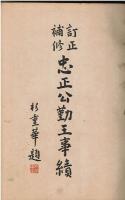 訂正
補修
忠正公勤王事績
杉重華題